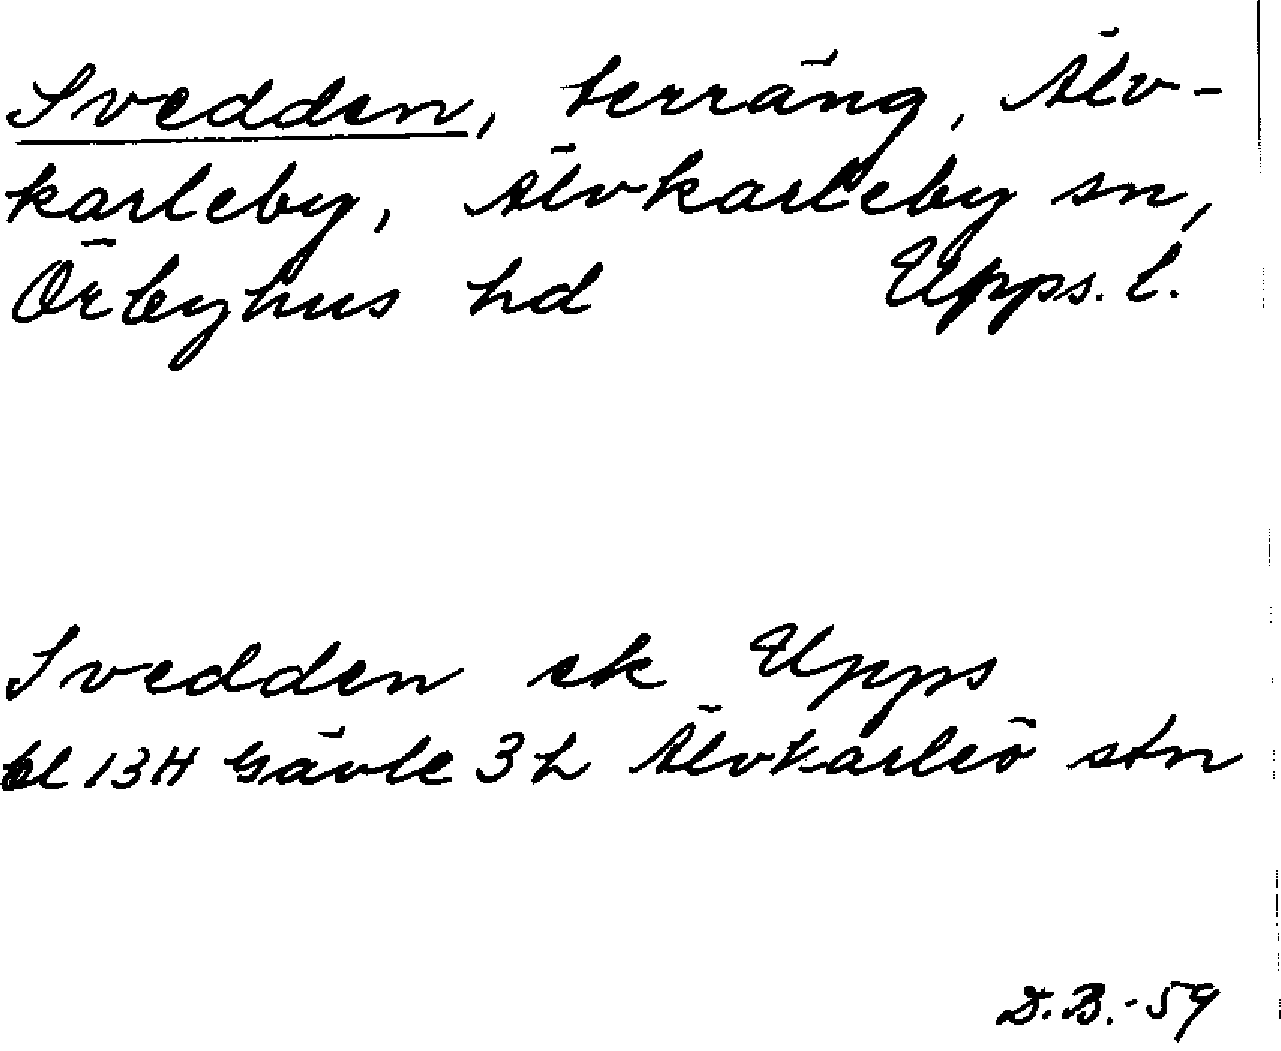 Svedden, terräng, Älv-
karleby, Älvkarleby sn,
Örbyhus hd Upps. l.
Svedden ek Upps
bl 13H Gävle 3h Älvkarleö stn
D.B.-59